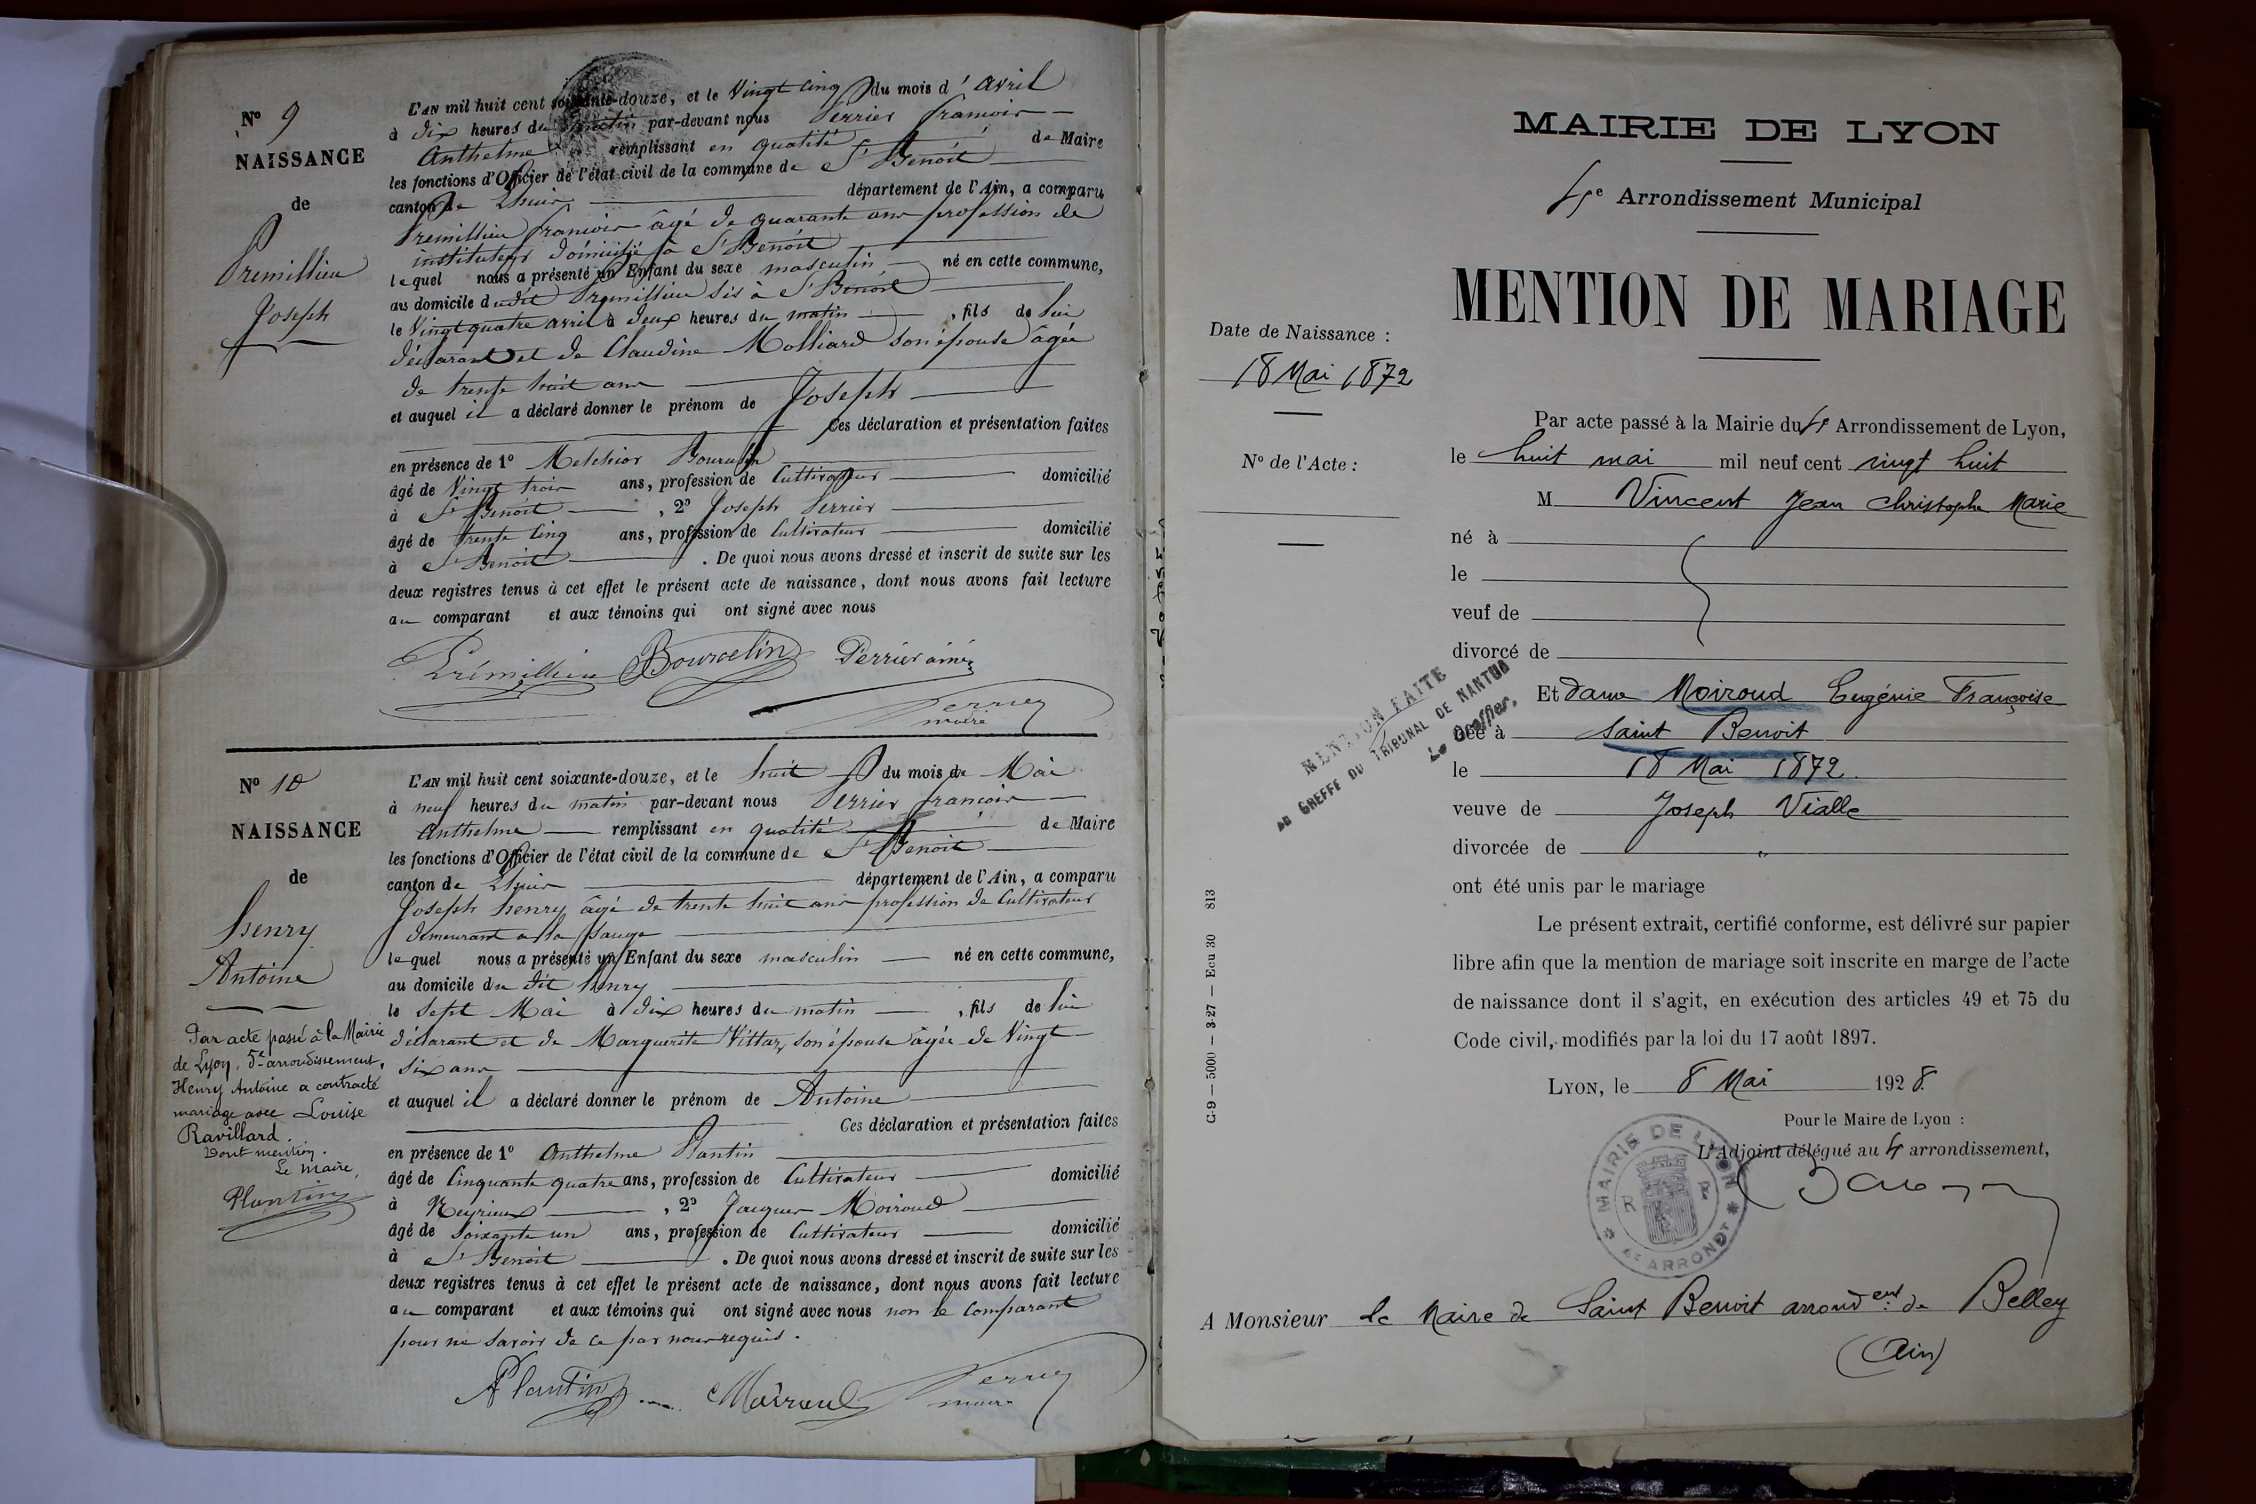 N° 9
NAISSANCE
de
Premillieu
Joseph
L'AN mil huit cent soixante-douze, et le Vingt cinq du mois d'avril
à dix heures du matin par-devant nous Perrier françois
Anthelme remplissant en qualité de Maire
les fonctions d'Officier de l'état civil de la commune de St Benoit
canton de Lhuis département de l'Ain, a comparu
Premillieu françois âgé de quarante ans profession de
instituteur domicilié à St Benoit
lequel nous a présenté un Enfant du sexe masculin né en cette commune,
au domicile dudit Premillieu sis à St Benoit
le Vingt quatre avril à deux heures du matin , fils de lui
déclarant et de Claudine Molliard son épouse âgée
de trente huit ans
et auquel il a déclaré donner le prénom de Joseph
Ces déclaration et présentation faites
en présence de 1° Melchior Bourcelin
âgé de Vingt trois ans, profession de Cultivateur domicilié
à St Benoit , 2° Joseph Perrier
âgé de trente cinq ans, profession de Cultivateur domicilié
à St Benoit . De quoi nous avons dressé et inscrit de suite sur les
deux registres tenus à cet effet le présent acte de naissance, dont nous avons fait lecture
au comparant et aux témoins qui ont signé avec nous
Prémillieu Bourcelin Perrier ainé
Perrier
maire
N° 10
NAISSANCE
de
henry
Antoine
Par acte passé à la Mairie
de Lyon, 5e arrondissement,
Henry Antoine a contracté
mariage avec Louise
Ravillard.
Dont mention.
Le Maire,
Plantin
L'AN mil huit cent soixante-douze, et le huit du mois de Mai
à neuf heures du matin par-devant nous Perrier françois
Anthelme remplissant en qualité de Maire
les fonctions d'Officier de l'état civil de la commune de St Benoit
canton de Lhuis département de l'Ain, a comparu
Joseph henry âgé de trente huit ans profession de Cultivateur
demeurant à la Sauge
lequel nous a présenté un Enfant du sexe masculin né en cette commune,
au domicile du dit henry
le Sept Mai à dix heures du matin , fils de lui
déclarant et de Marguerite Vittaz son épouse âgée de Vingt
six ans
et auquel il a déclaré donner le prénom de Antoine
Ces déclaration et présentation faites
en présence de 1° Anthelme Plantin
âgé de Cinquante quatre ans, profession de Cultivateur domicilié
à Neyrieux , 2° Jacques Moiroud
âgé de soixante un ans, profession de Cultivateur domicilié
à St Benoit . De quoi nous avons dressé et inscrit de suite sur les
deux registres tenus à cet effet le présent acte de naissance, dont nous avons fait lecture
au comparant et aux témoins qui ont signé avec nous non le Comparant
pour ne savoir de ce par nous requis.
A Plantin Moiroud Perrier
maire
MAIRIE DE LYON
4e Arrondissement Municipal
MENTION DE MARIAGE
Date de Naissance :
18 Mai 1872
N° de l'Acte :
Par acte passé à la Mairie du 4e Arrondissement de Lyon,
le huit mai mil neuf cent vingt huit
M Vincent Jean Christophe Marie
né à
le
veuf de
divorcé de
Et dame Moiroud Eugénie Françoise
née à Saint Benoit
le 18 Mai 1872.
veuve de Joseph Vialle
divorcée de "
ont été unis par le mariage
Le présent extrait, certifié conforme, est délivré sur papier
libre afin que la mention de mariage soit inscrite en marge de l'acte
de naissance dont il s'agit, en exécution des articles 49 et 75 du
Code civil, modifiés par la loi du 17 août 1897.
LYON, le 8 Mai 1928.
Pour le Maire de Lyon :
L'Adjoint délégué au 4 arrondissement,
MAIRIE DE LYON
R F
4e ARRONDT
MENTION FAITE
AU GREFFE DU TRIBUNAL DE NANTUA
Le Greffier,
C-9 — 5000 — 3-27 — Ecu 30 813
A Monsieur le Maire de Saint Benoit arrondent de Belley
(Ain)